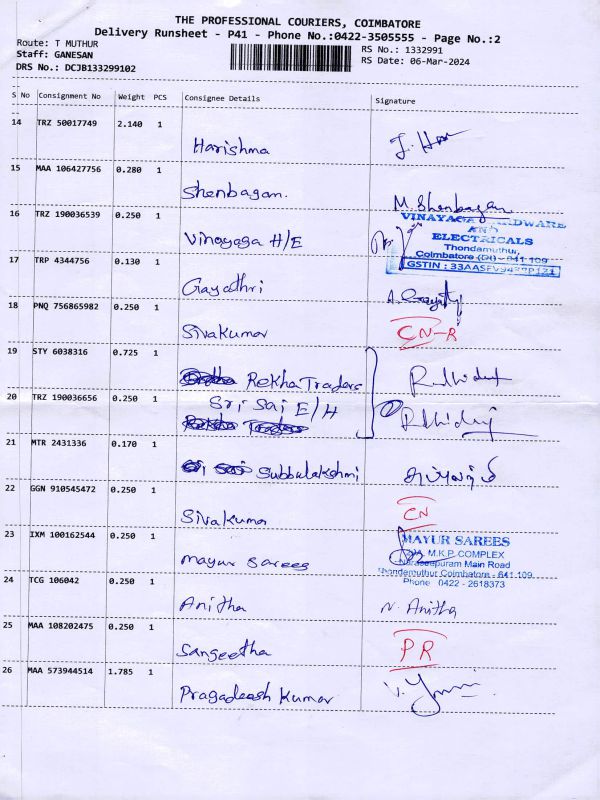 THE PROFESSIONAL COURIERS, COIMBATORE
Delivery Runsheet - P41 - Phone No.:0422-3505555 - Page No.:2
Route: T MUTHUR RS No.: 1332991
Staff: GANESAN RS Date: 06-Mar-2024
DRS No.: DCJB133299102
S No Consignment No Weight PCS Consignee Details Signature
14 TRZ 50017749 2.140 1
Harishma
15 MAA 106427756 0.280 1
Shenbagam. M. Shenbagam
16 TRZ 190036539 0.250 1
VINAYAGA HARDWARE
AND
ELECTRICALS
Vinayaga H/E
Thondamuthur,
Coimbatore (Dt) - 641 109
17 TRP 4344756 0.130 1
GSTIN :
Gayathri A. Gayathri
18 PNQ 756865982 0.250 1
Sivakumar CN-R
19 STY 6038316 0.725 1
Rekha Traders
20 TRZ 190036656 0.250 1
Sri Sai E/H
21 MTR 2431336 0.170 1
Subbulakshmi
22 GGN 910545472 0.250 1
Sivakumar CN
23 IXM 100162544 0.250 1
MAYUR SAREES
M.K.P. COMPLEX
Mayur Sarees Naraseepuram Main Road
Thondamuthur Coimbatore - 641 109.
Phone 0422 - 2618373
24 TCG 106042 0.250 1
Anitha N. Anitha
25 MAA 108202475 0.250 1
Sangeetha PR
26 MAA 573944514 1.785 1
Pragadeesh Kumar